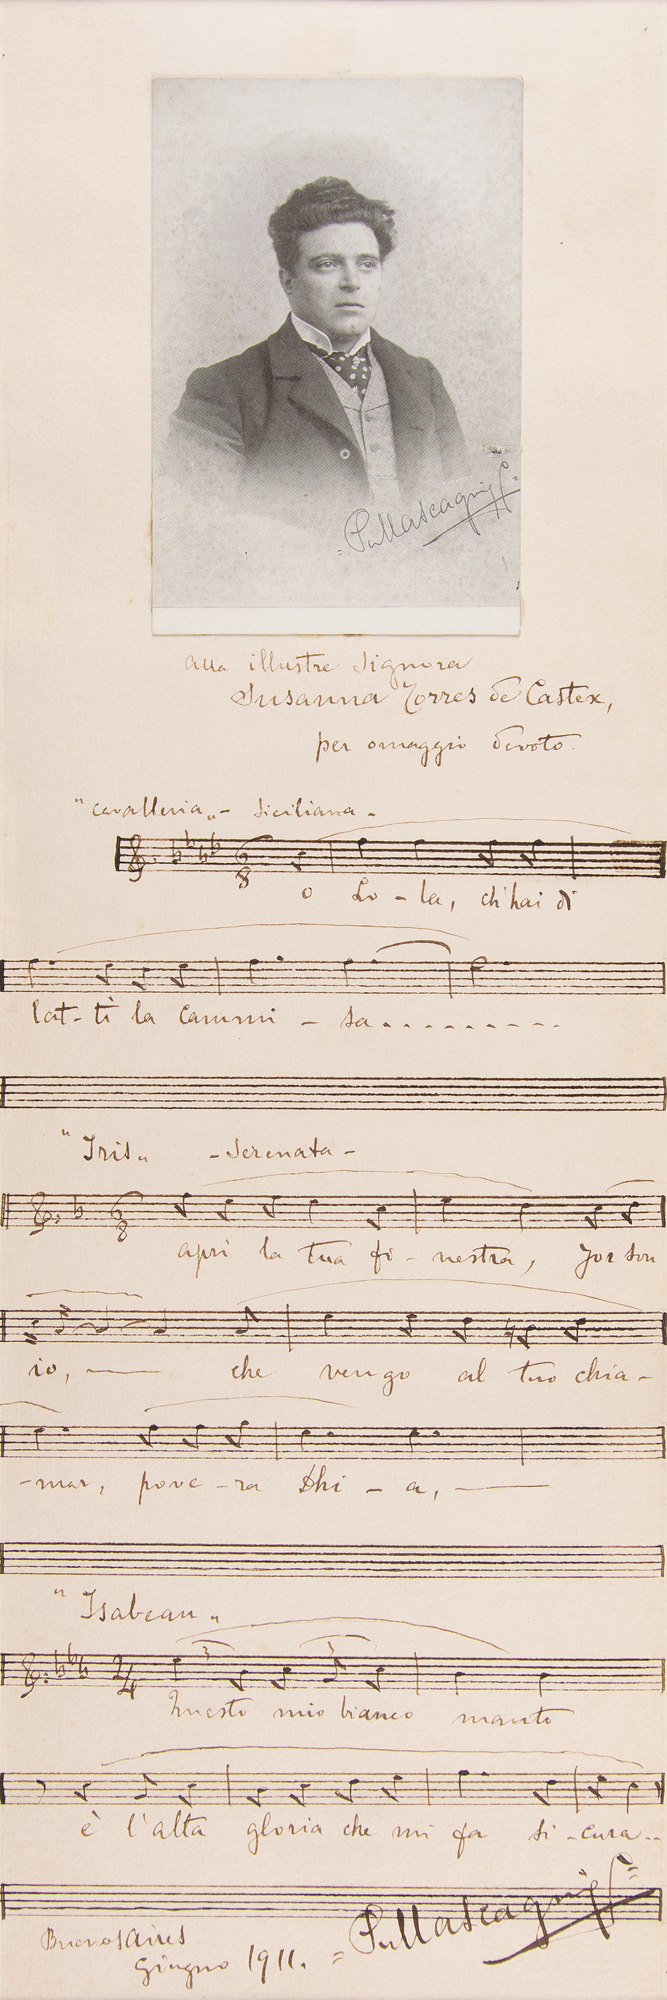 P. Mascagni
alla illustre Signora
Susanna Torres de Castex,
per omaggio devoto.
"Cavalleria" - Siciliana -
O Lo - la, ch'hai di
lat - ti la cammi - sa . . . . . . . . .
"Iris" - Serenata -
apri la tua fi - nestra, Jor son
io, — che vengo al tuo chia -
- mar, pove - ra Dhi - a, —
"Isabeau"
3 3
Questo mio bianco manto
è l'alta gloria che mi fa si - cura . .
Buenos Aires
Giugno 1911. = P. Mascagni